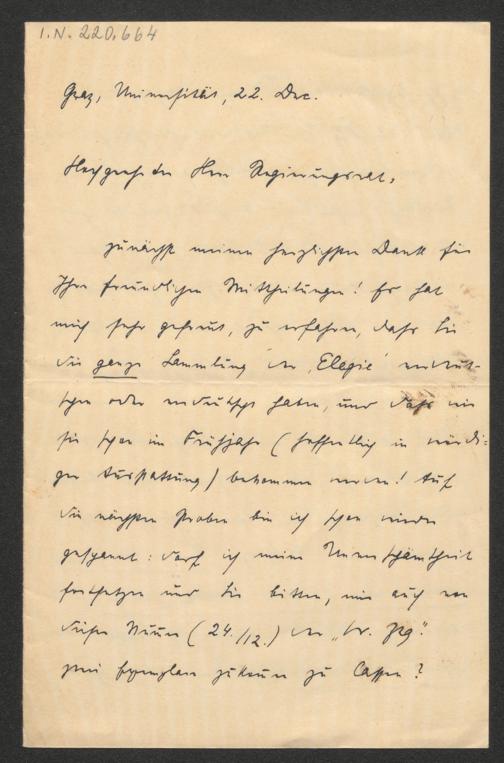 I.N. 220.664
Graz, Universität, 22. Dec.
Hochgeehrter Herr Regierungsrat,
zunächst meinen herzlichsten Dank für
Ihre freundlichen Mittheilungen! Es hat
mich sehr gefreut, zu erfahren, dass Sie
die ganze Sammlung der „Elegie“
schon oder haben, und dass wir
sie schon im Frühjahr (hoffentlich in würdi-
ger Ausstattung) bekommen werden! Auf
die nächsten Proben bin ich schon wieder
gespannt: darf ich meine Unverschämtheit
fortsetzen und Sie bitten, mir auch von
dieser Nummer (24./12.) der „Gr. Ztg.“
zwei Exemplare zukommen zu lassen?